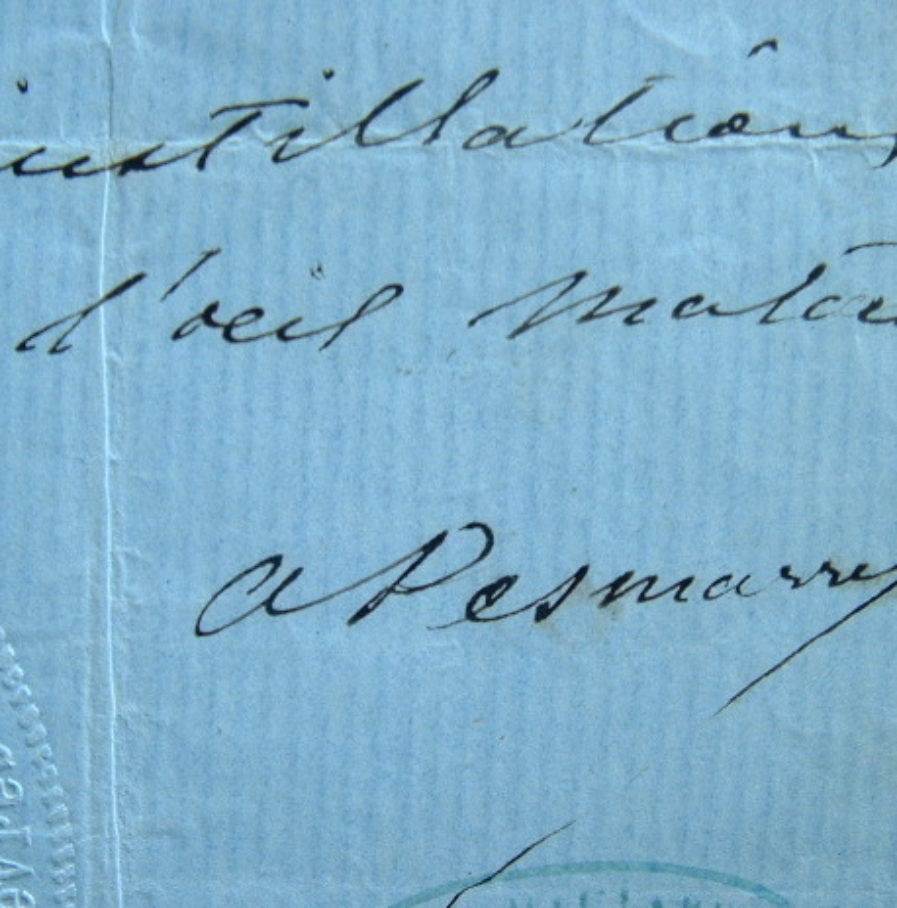 instillations
l'oeil mala
A Desmarres